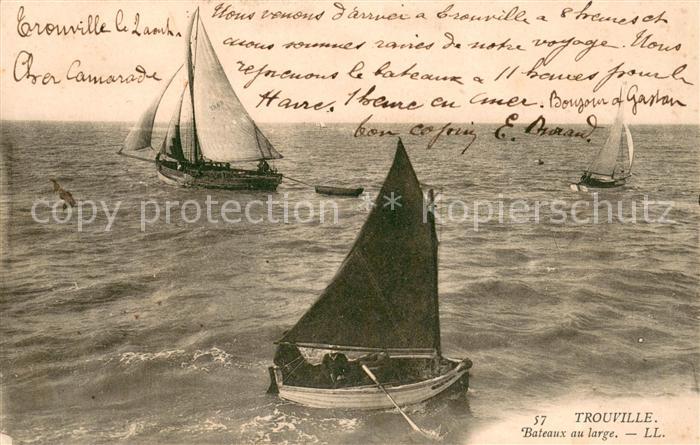 Trouville le 2 août.
Cher Camarade
Nous venons d'arrivé a Trouville a 8 heures et
nous sommes ravies de notre voyage. Nous
rejoenous le bateaux a 11 heures pour le
Havre. 1 heure en mer. Bonjour à Gaston
bon copin E. Durand.
copy protection * copyrightschutz *
57 TROUVILLE.
Bateaux au large. — LL.